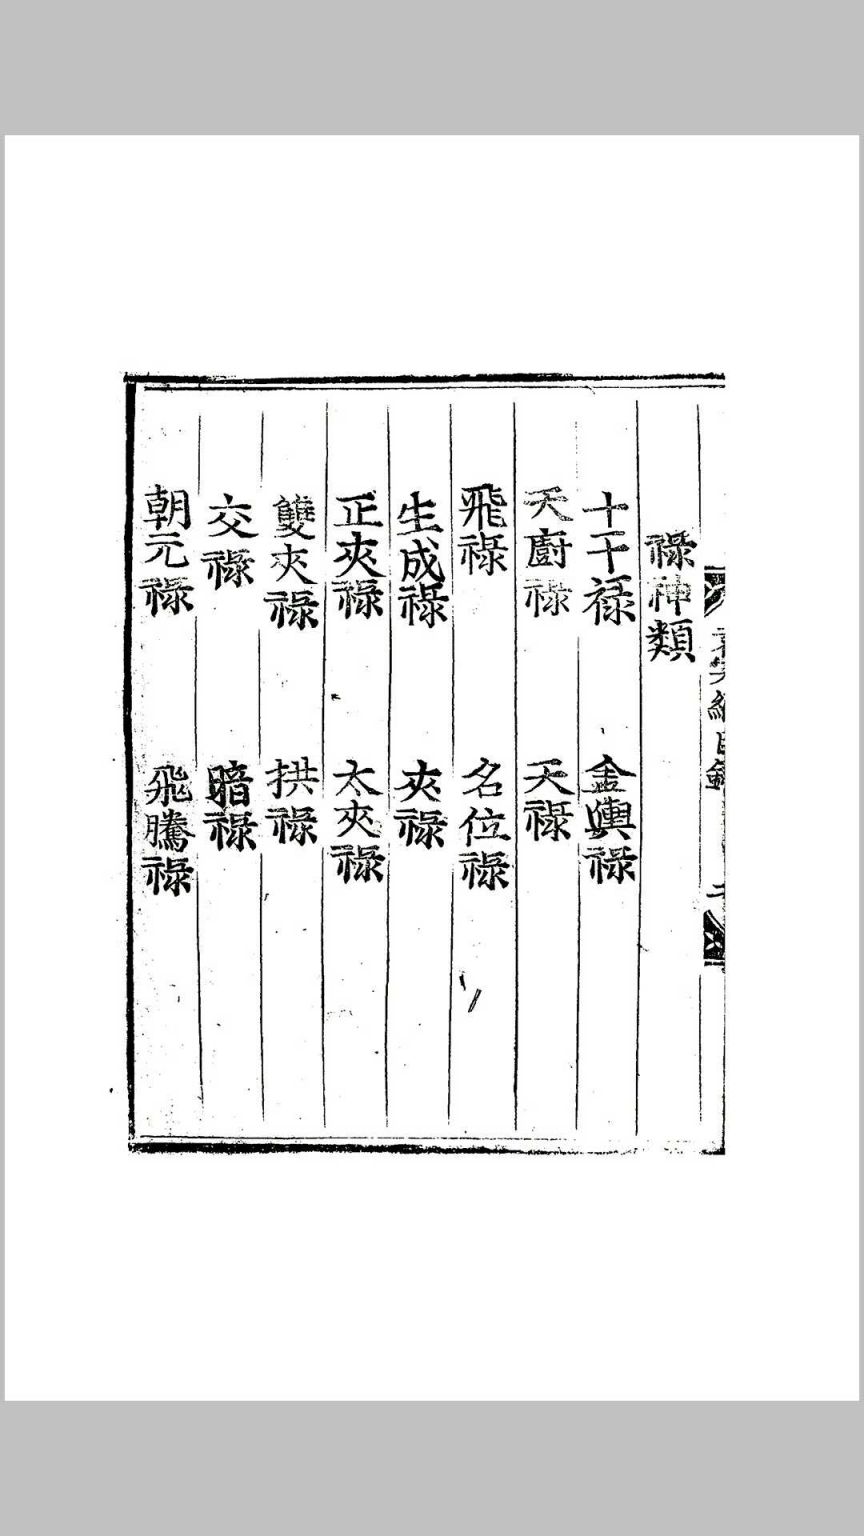 祿神類
十干祿 金輿祿
天廚祿 天祿
飛祿 名位祿
生成祿 夾祿
正夾祿 太夾祿
雙夾祿 拱祿
交祿 暗祿
朝元祿 飛騰祿